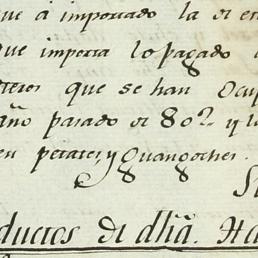 que à importado la di en
que importa lo pagado
teros que se han Ocup
año pasado di 80? y l
en petates, y Guangoches.
ductos di dhã. Ha